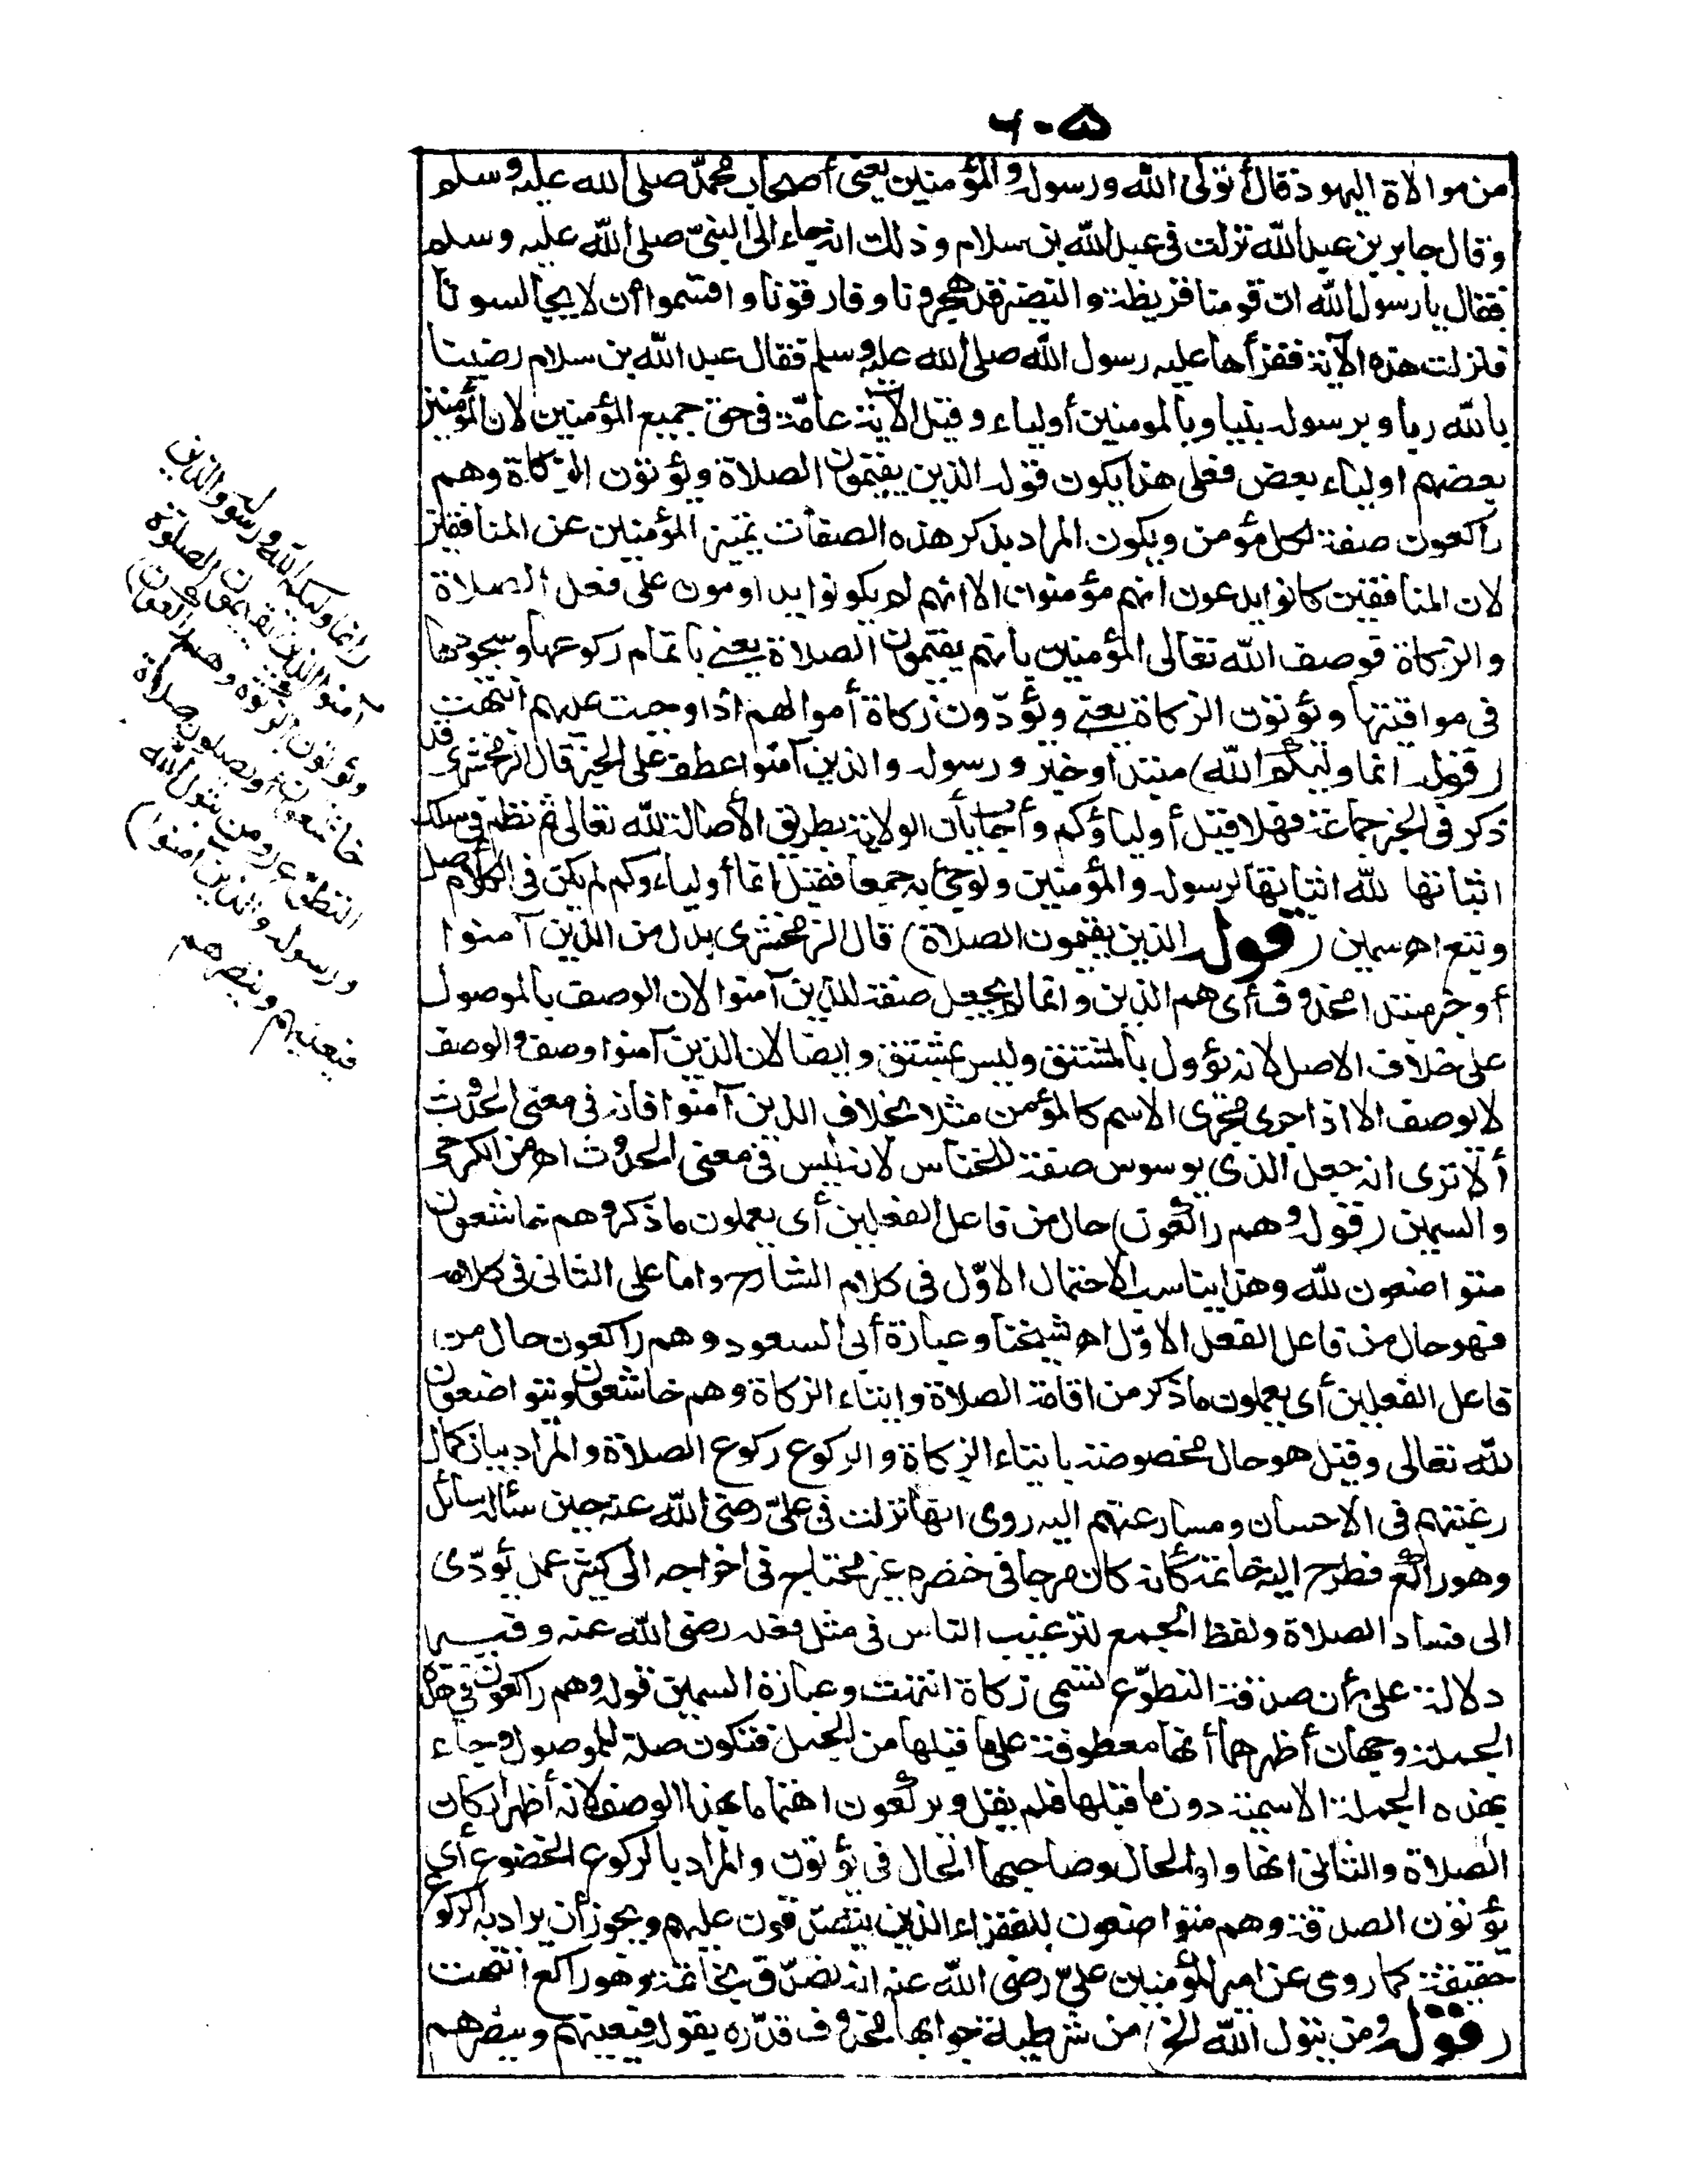 ٦٠۵
من موالاة اليهود قال أتولى الله ورسوله والمؤمنين يعنى أصحاب محمد صلى الله عليه وسلم
وقال جابر بن عبد الله نزلت فى عبد الله بن سلام وذلك انه جاء الى النبىّ صلى الله عليه وسلم
فقال يا رسول الله ان قومنا قريظة والنضير قد هجرونا وفارقونا واقسموا أن لا يجالسونا
فنزلت هذه الآية فقرأها عليه رسول الله صلى الله عليه وسلم فقال عبد الله بن سلام رضينا
بالله ربا وبرسوله نبيا وبالمومنين أولياء وقيل الآية عامّة فى حق جميع المؤمنين لان المؤمنين
بعضهم اولياء بعض فعلى هذا يكون قوله الذين يقيمون الصلاة ويؤتون الزكاة وهم
راكعون صفة لكل مؤمن ويكون المراد بذكر هذه الصفات تمييز المؤمنين عن المنافقين
لان المنافقين كانوا يدعون انهم مؤمنون الا انهم لم يكونوا يداومون على فعل الصلاة
والزكاة فوصف الله تعالى المؤمنين بانهم يقيمون الصلاة يعنى باتمام ركوعها وسجودها
فى مواقيتها ويؤتون الزكاة يعنى ويؤدّون زكاة أموالهم اذا وجبت عليهم انتهت
(قوله انما وليكم الله) مبتدأ وخبر ورسوله والذين آمنوا عطف على الخبر قال الزمخشرى قد
ذكر فى الخبر جماعة فهلا قيل أولياؤكم وأجاب بأن الولاية بطريق الأصالة لله تعالى ثم نظم فى سلك
اثباتها لله اثباتها لرسوله والمؤمنين ولو جئ به جمعا فقيل انما أولياءوكم لم يكن فى الكلام أصل
وتبع اه سمين (قوله الذين يقيمون الصلاة) قال الزمخشرى بدل من الذين آمنوا
أو خبر مبتدا محذوف أى هم الذين وانما لم يجعل صفة للذين آمنوا لان الوصف بالموصول
على خلاف الاصل لانه يؤول بالمشتق وليس بمشتق وايضا لان الذين آمنوا وصف والوصف
لا يوصف الا اذا جرى مجرى الاسم كالمؤمن مثلا بخلاف الذين آمنوا فانه فى معنى الحدوث
ألا ترى انه جعل الذى يوسوس صفة للخناس لانه ليس فى معنى الحدوث اه من الكرخى
والسمين (قوله وهم راكعون) حال من فاعل الفعلين أى يعملون ما ذكر وهم خاشعون
متواضعون لله وهذا يناسب الاحتمال الاوّل فى كلام الشارح واما على الثانى فى كلامه
فهو حال من فاعل الفعل الاوّل اه شيخنا وعبارة أبى السعود وهم راكعون حال من
فاعل الفعلين أى يعملون ما ذكر من اقامة الصلاة وايتاء الزكاة وهم خاشعون ومتواضعون
لله تعالى وقيل هو حال مخصوصة بايتاء الزكاة والركوع ركوع الصلاة والمراد بيان كمال
رغبتهم فى الاحسان ومسارعتهم اليه روى انها نزلت فى علىّ رضى الله عنه حين سأله سائل
وهو راكع فطرح اليه خاتمه كأنه كان مرجا فى خنصره غير محتاج فى اخراجه الى كثير عمل يؤدّى
الى فساد الصلاة ولفظ الجمع لترغيب الناس فى مثل فعله رضى الله عنه وفيه
دلالة على أن صدقة التطوّع تسمى زكاة انتهت وعبارة السمين قوله وهم راكعون فى هذه
الجملة وجهان أظهرهما أنها معطوفة على ما قبلها من الجمل فتكون صلة للموصول وجاء
بهذه الجملة الاسمية دون ما قبلها فلم يقل ويركعون اهتماما بهذا الوصف لانه أظهر اركان
الصلاة والثانى انها واو الحال وصاحبها الحال فى يؤتون والمراد بالركوع الخضوع أى
يؤتون الصدقة وهم متواضعون للفقراء الذين يتصدّقون عليهم ويجوز أن يراد به الركوع
حقيقة كما روى عن امير المؤمنين علىّ رضى الله عنه انه تصدّق بخاتمه وهو راكع انتهت
(قوله ومن يتول الله الخ) من شرطية جوابها محذوف قدّره بقوله فيعينهم وينصرهم
(انما وليكم الله ورسوله والذين
آمنوا الذين يقيمون الصلوة
ويؤتون الزكوة وهم راكعون)
خاشعون أو يصلون صلاة
التطوّع (ومن يتول الله
ورسوله والذين آمنوا)
فيعينهم وينصرهم